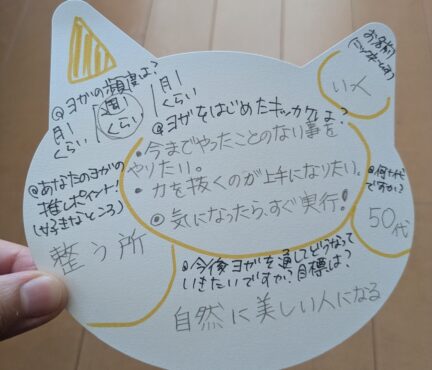 お名前
(ニックネーム可)
いく
@ヨガの頻度は?
月1
くらい
週1
くらい
月1
くらい
@ヨガをはじめたキッカケは?
・今までやったことのない事を
やりたい。
・力を抜くのが上手になりたい。
◎気になったら、すぐ実行!
@あなたのヨガの
推しポイント!
(好きなところ)
整う所
@何十代
ですか?
50代
@今後ヨガを通してどうなって
いきたいですか?目標は?
自然に美しい人になる